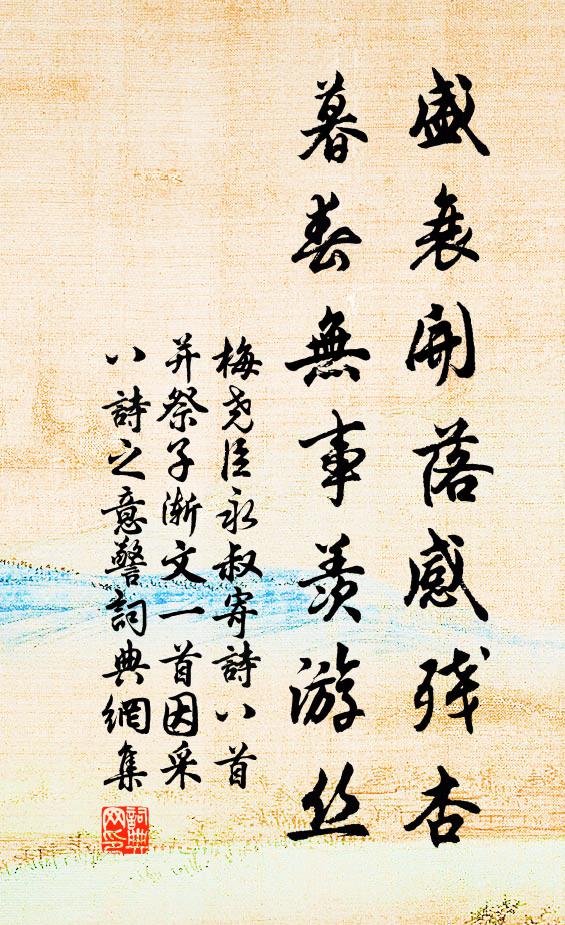 盛衰開落感残杏
暮春無事羨游丝
梅尧臣永叔寄詩八首
并祭子渐文一首因采
八詩之意警詞典網集
詞典網印